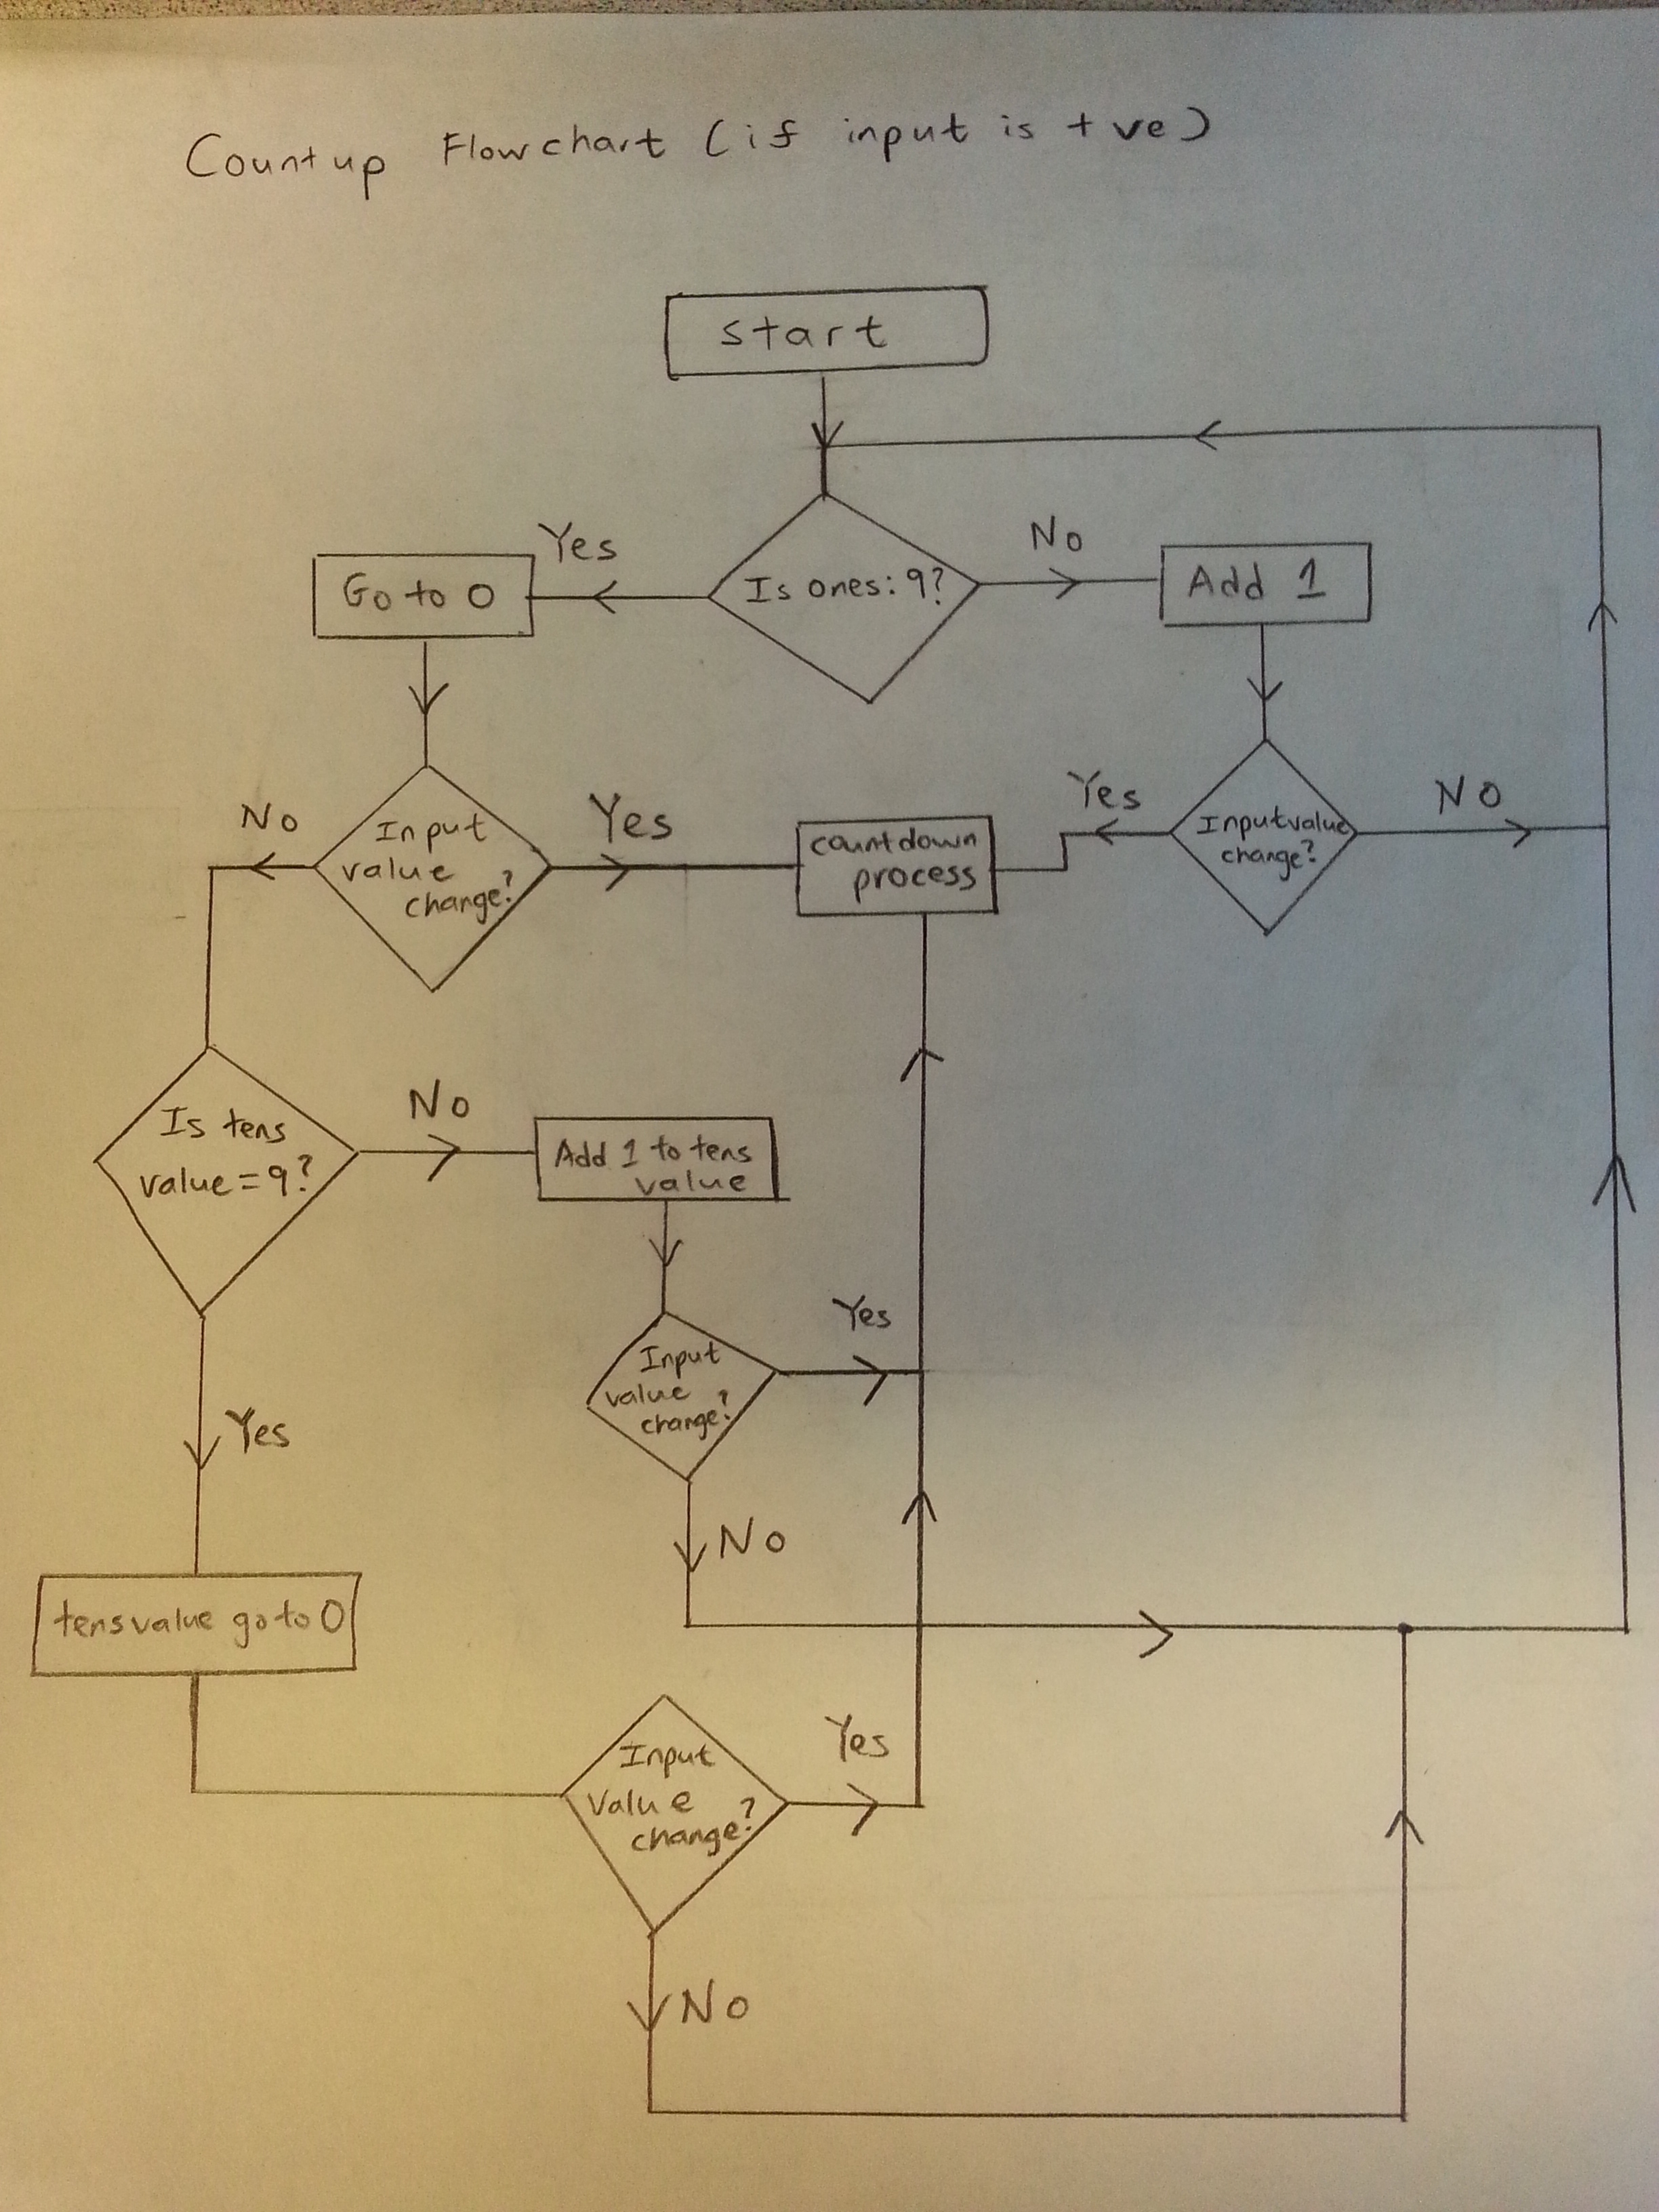 Countup Flowchart (if input is +ve)
start
Yes
No
Go to 0
Is ones: 9?
Add 1
No
Yes
Yes
NO
Input
value
change?
countdown
process
Inputvalue
change?
No
Is tens
value=9?
Add 1 to tens
value
Yes
Input
value
change?
Yes
No
tensvalue go to 0
Yes
Input
Value
change?
No